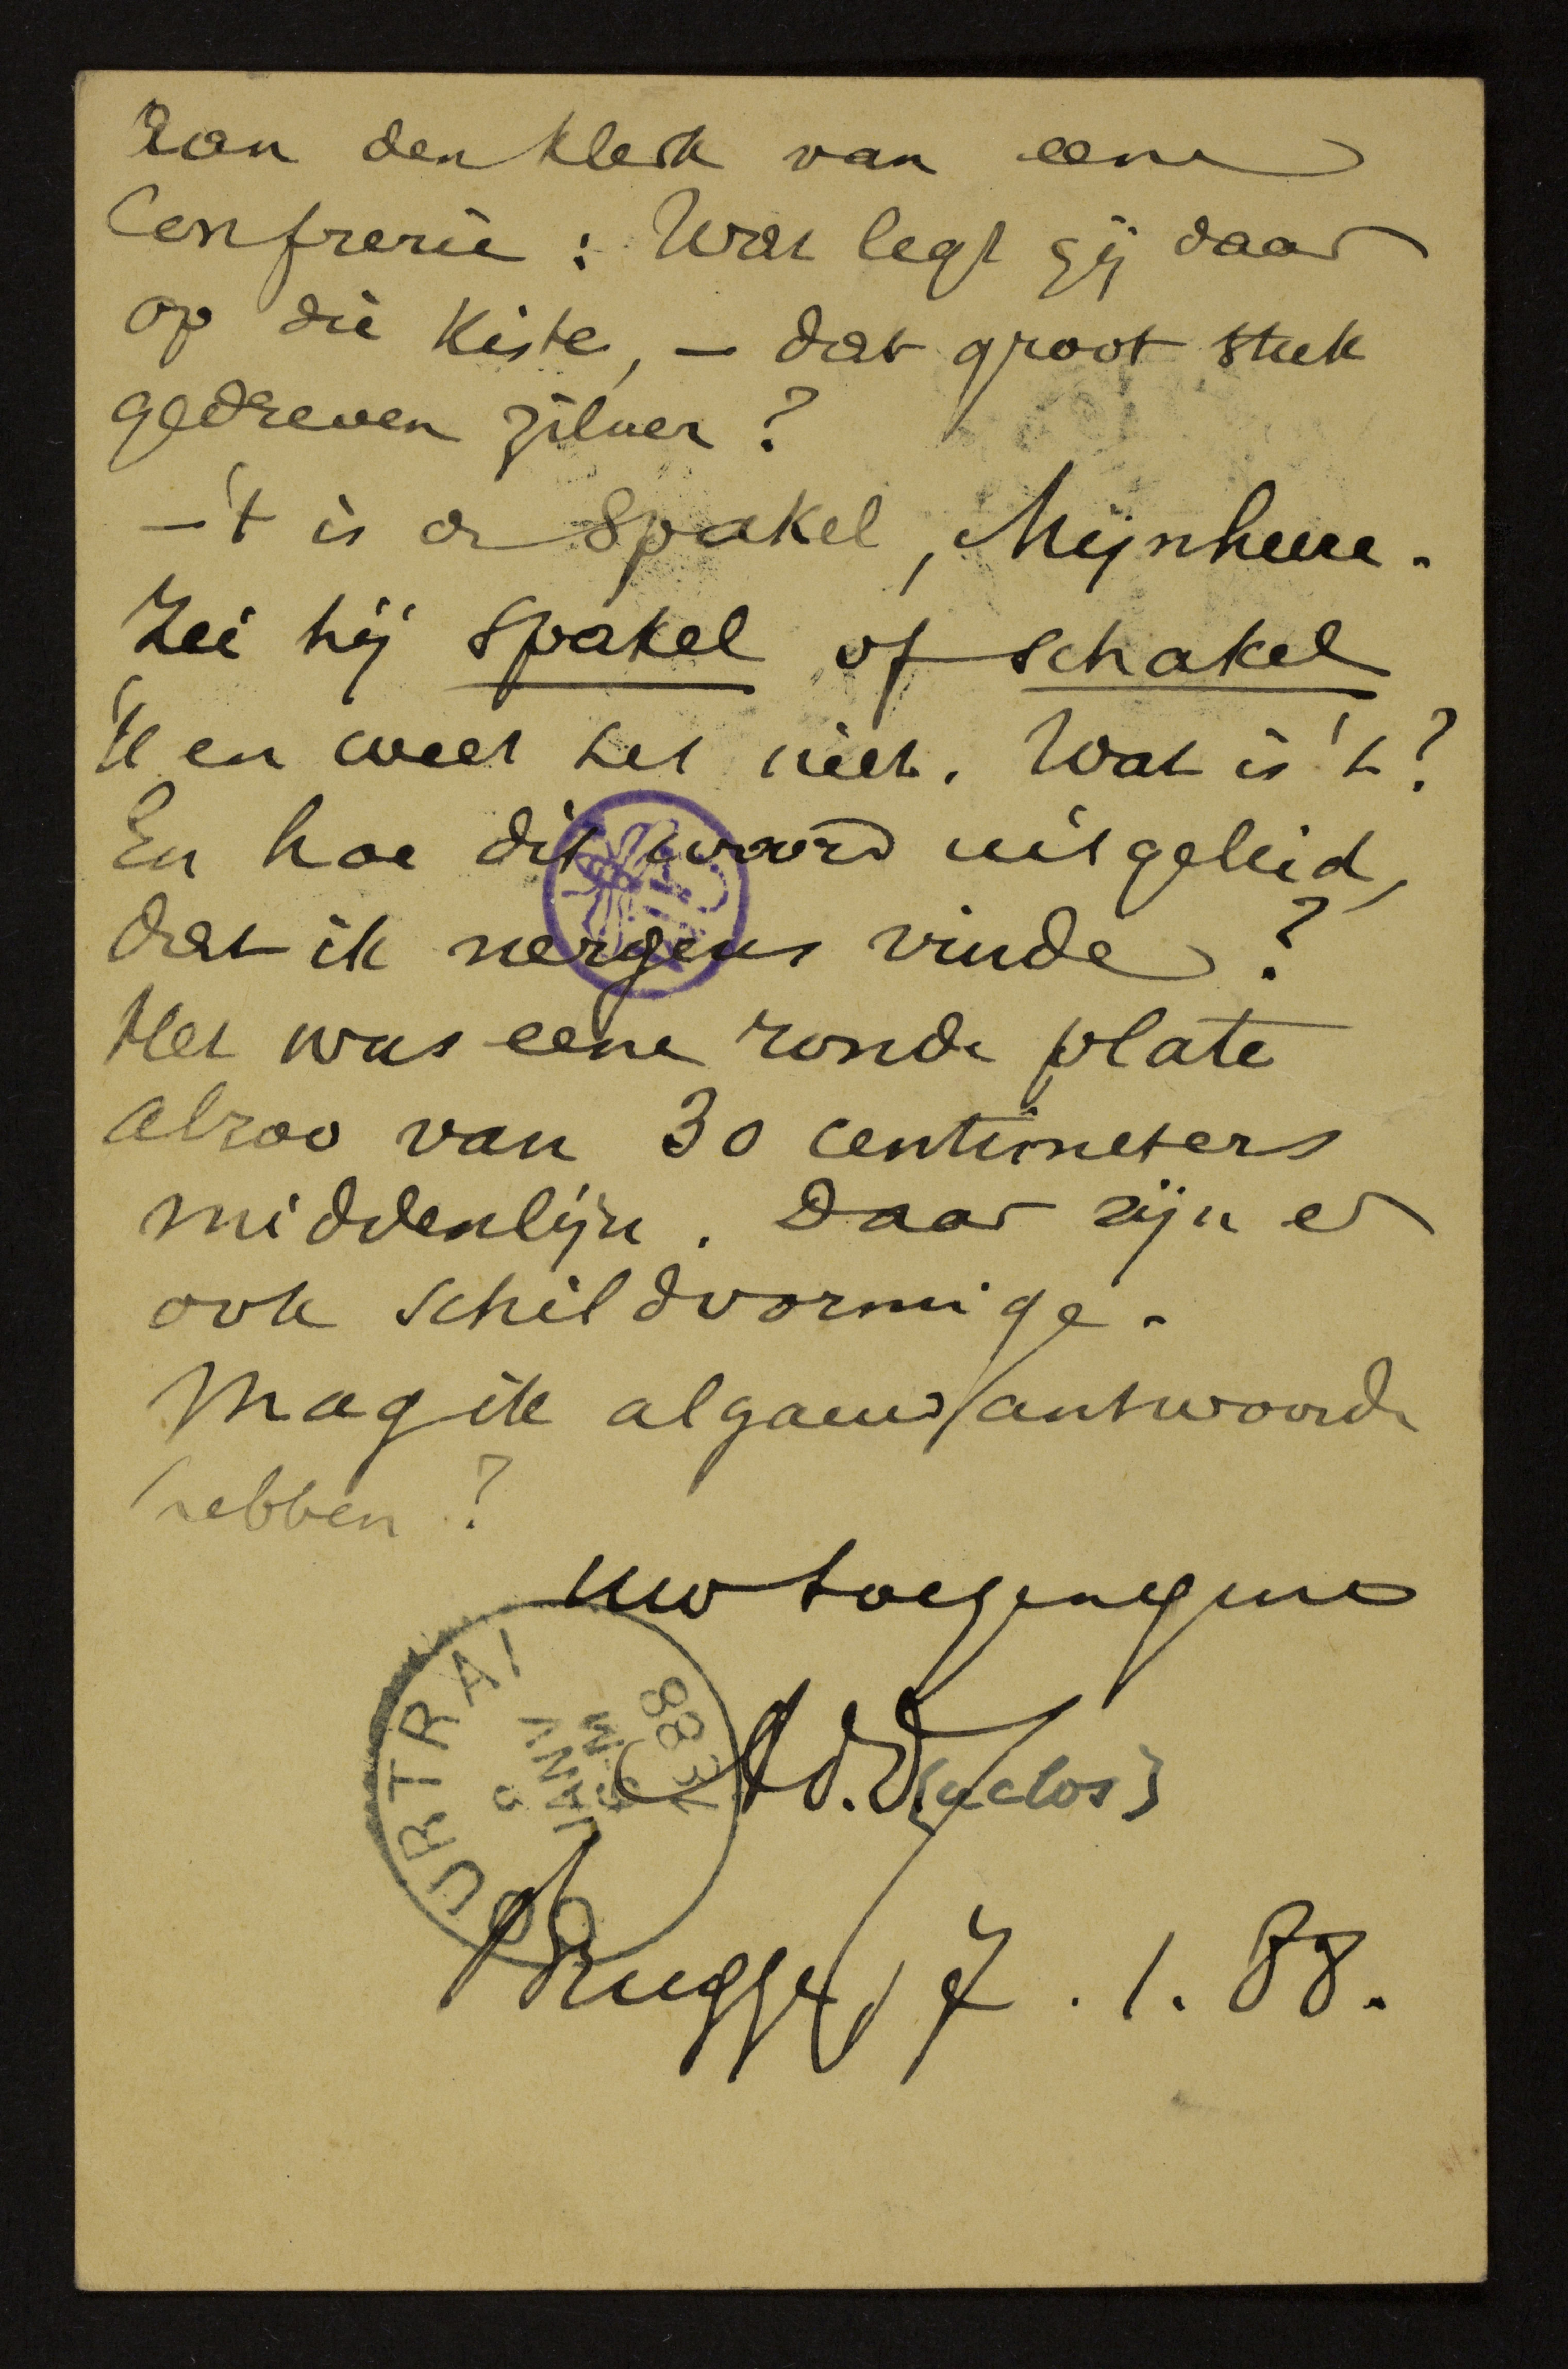 Aan den klerk van eene
Confrerie : Wat legt gij daar
op die Kiste, – dat groot stuk
gedreven zilver ?
– 't is de Spakel, Mijnheere.
Zei hij spakel of schakel
'k en weet het niet. Wat is 't ?
En hoe dit woord uitgeleid,
dat ik nergens vinde ?
Het was eene ronde plate
alzoo van 30 centimeters
middenlijn. Daar zijn er
ook schildvormige.
Mag ik algauw antwoorde
hebben ?
Uw toegenegene
Ad. D[uclos]
Brugge, 7. 1. 88.
COURTRAI
9
JANV
9-M
1888